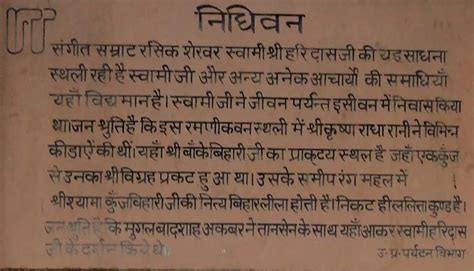 निधिवन
संगीत सम्राट रसिक शेरवर स्वामी श्री हरिदासजी की यह साधना
स्थली रही है स्वामी जी और अन्य अनेक आचार्यो की समाधियाँ
यहाँ विद्यमान है। स्वामी जी ने जीवन पर्यन्त इसी वन में निवास किया
था। जन श्रुति है कि इस रमणीक वन स्थली में श्री कृष्ण राधा रानी ने विभिन्न
क्रीडाऐं की थीं। यहाँ श्री बाँके बिहारी जी का प्राकट्य स्थल है जहाँ एक कुँज
से उनका श्री विग्रह प्रकट हुआ था। उसके समीप रंग महल में
श्री श्यामा कुँजबिहारी जी की नित्य बिहार लीला होती है। निकट ही ललिता कुण्ड है।
जन श्रुति है कि मुगल बादशाह अकबर ने तानसेन के साथ यहाँ आकर स्वामी हरिदास
जी के दर्शन किये थे।
उ॰प्र॰पर्यटन विभाग